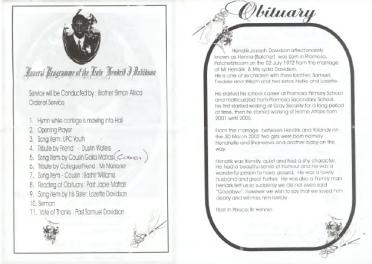 Funeral Programme of the Late Hendrik J Davidson
Service will be Conducted by : Brother Simon Africa
Order of Service
1. Hymn while carriage is moving into Hall
2. Opening Prayer
3. Song item: UPC Youth
4. Tribute by Friend - Dustin Waters
5. Song item by Cousin Galia Matras (Cousin)
6. Tribute by Colleague/Friend : Mr Marionier
7. Song item - Cousin : Eastin Williams
8. Reading of Obituary : Past Japie Matras
9. Song item by his Sister: Lozette Davidson
10. Sermon
11. Vote of Thanks : Past Samuel Davidson
Obituary
Hendrik Joseph Davidson affectionately
known as Henna (Butcher), was born in Promosa,
Potchefstroom on the 02 July 1972 from the marriage
of Mr Hendrik & Mrs Lydia Davidson.
He is one of six children with three brothers, Samuel,
Freddie and William and two sisters Nellie and Lozette.
He started his school career at Promosa Primary School
and matriculated from Promosa Secondary School.
He first started working at Gray Security for a long period
at time, then he started working at Home Affairs from
2001 until 2005.
From the marriage between Hendrik and Yolandy on
the 30 March 2002 two girls were born namely
Hendrinette and Shanelree and another baby on the
way.
Hendrik was friendly, quiet and had a shy character.
He had a beautiful sense of humour and he was a
wonderful person to have around. He was a lovely
husband and great father. He was also a family man.
Hendrik left us so suddenly we did not even said
"Goodbye", however we wish to say that we loved him
dearly and will miss him terribly.
Rest in Peace, Br Hennie.